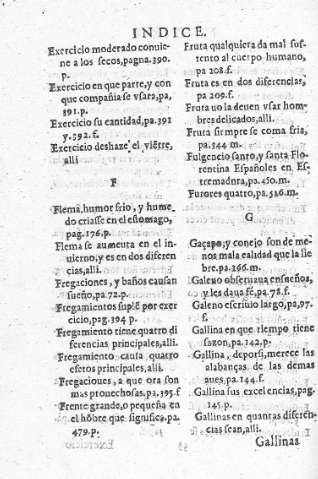 INDICE.
Exercicio moderado conuie-
ne a los secos, pagna.390.
p.
Exercicio en que parte, y con
que compañia se vsara, pa,
391.p.
Exercicio su cantidad, pa.391
y.392.f.
Exercicio deshaze el viẽtre,
alli
F
Flema, humor frio, y hume-
do criasse en el estomago,
pag.176.p.
Flema se aumenta en el in-
uierno, y es en dos diferen
cias, alli.
Fregaciones, y baños causan
sueño, pa.72.p.
Fregamientos suplẽ por exer
cicio, pag.394 p.
Fregamiento tiene quatro di
ferencias principales, alli.
Fregamiento causa quatro
efetos principales, alli.
Fregaciones, a que ora son
mas prouechosas, pa.395.f
Frente grande, o pequeña en
el hõbre que significa, pa.
479.p.
Exercicio
Fruta qualquiera da mal sus-
tento al cuerpo humano,
pa 208.f.
Fruta es en dos diferencias,
pa 209.f.
Fruta no la deuen vsar hom-
bres delicados, alli.
Fruta siempre se coma fria,
pa.344 m.
Fulgencio santo, y santa Flo-
rentina Españoles en Es-
tremadura, pa.450.m.
Furores quatro, pa.526.m.
G
Gaçapo, y conejo son de me-
nos mala calidad que la lie
bre.pa.166.m.
Galeno obseruaua ensueños,
y les daua fẽ, pa.78.f.
Galeno escriuio largo, pa,97.
f.
Gallina en que tiempo tiene
sazon, pa.142.p.
Gallina, deporsi, merece las
alabanças de las demas
aues, pa.144.f.
Gallina sus excelencias, pag.
145.p.
Gallinas en quantas diferen-
cias sean, alli.
Gallinas